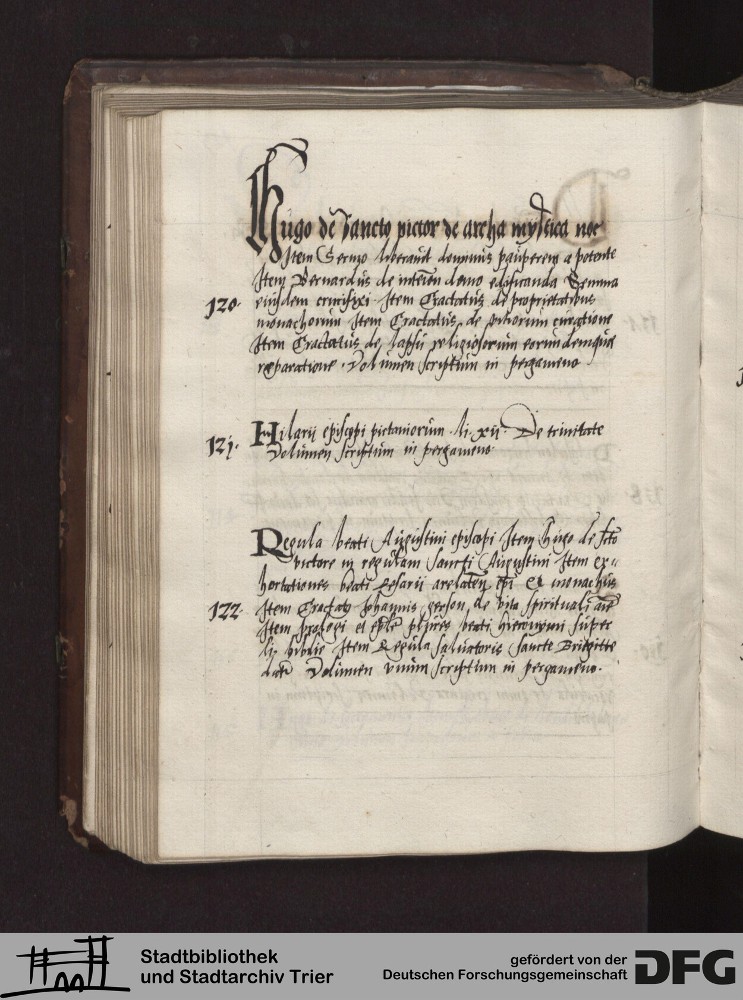 Hugo de Sancto victor de archa mystica noe
Item Sermo liberavit dominus pauperem a potente
Item Bernardus de interiori domo edificanda Gemma
120. eiusdem crucifixi. Item Tractatus de proprietatibus
monachorum Item Tractatus de vitiorum curatione
Item Tractatus de lapsu religiosorum eorundemque
reparatione. Volumen scriptum in pergameno
121. Hilarii episcopi pictaviorum li. xii. De trinitate
Volumen scriptum in pergameno
Regula beati Augustini episcopi Item Hugo de scto
victore in regulam Sancti Augustini Item ex-
hortationes beati Cesarii arelaten epi ex monachus
122. Item Tractatus Johannis gerson, de vita spirituali aie
Item prologi et eple plures beati Hieronymi super
li. biblie Item Regula salvatoris sancte Brigitte
date Volumen unum scriptum in pergameno.
Stadtbibliothek
und Stadtarchiv Trier
gefördert von der
Deutschen Forschungsgemeinschaft
DFG